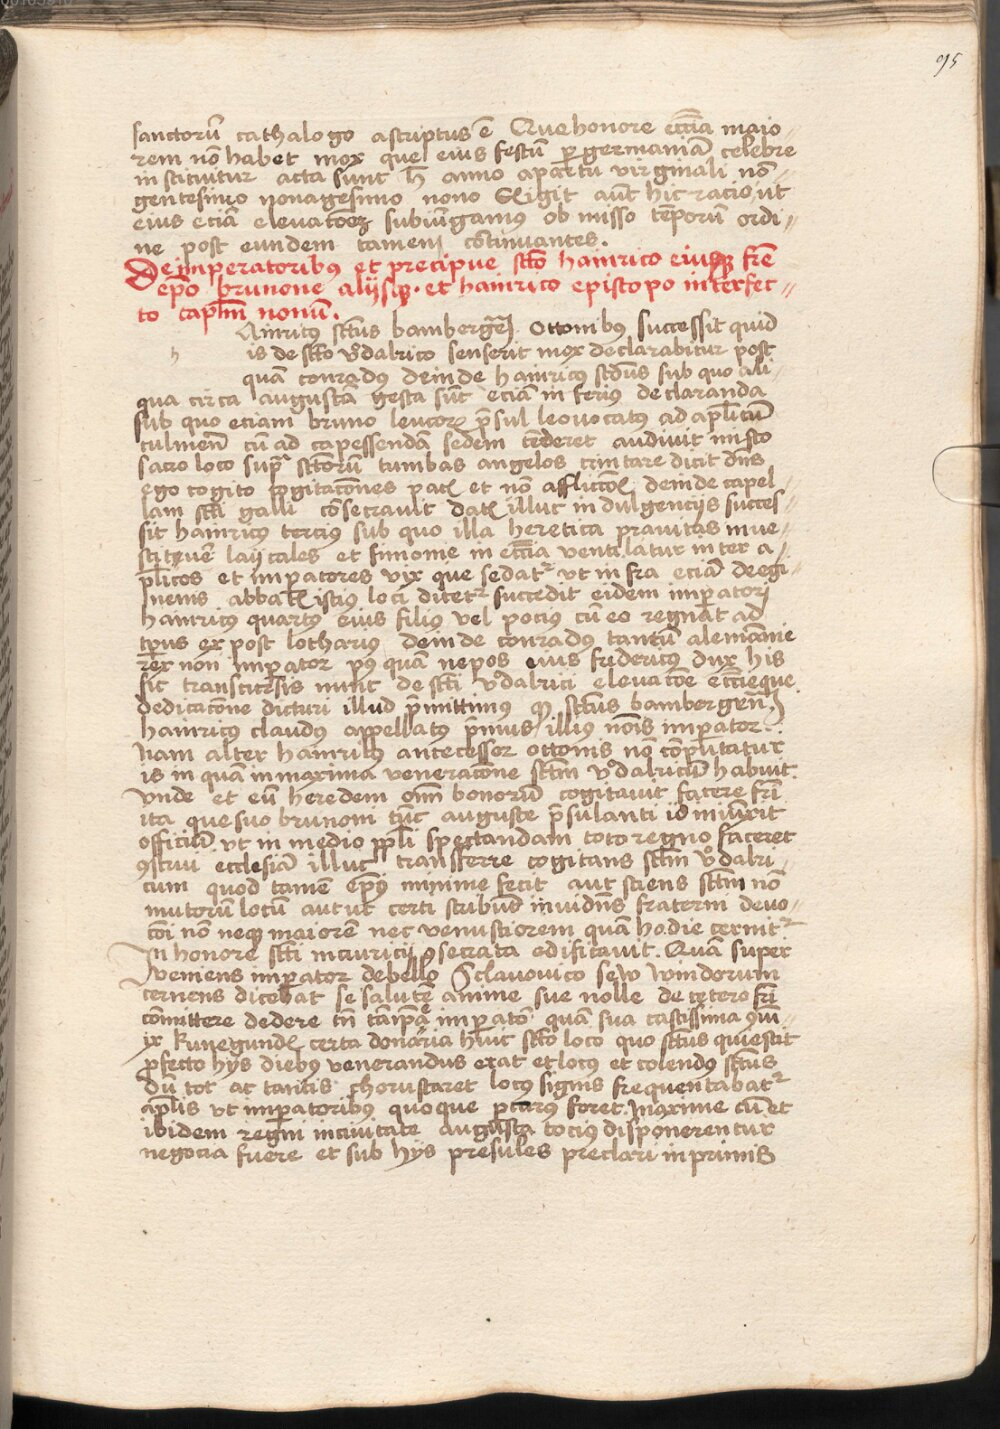 95
sanctorū cathalogo ascriptus ē Que honore eccīa maio
rem nō habet mox que eius festū p germaniā celebre
instituitur acta sunt h anno apartu virginali nō
gentesimo nonagesimo nono Exigit aut hic racio ut
eius eciā elevacōez subiūgamus ob misso tēporū ordi
ne post eundem tamen cōtinuantes.
De imperatoribus et precipue scto hainrico eiusq fre
epo brunone alijsq. et hainrico episcopo interfec
to caplm nonū.
Ainricus sctus bambergeñ Ottonibus successit quid
h is de scto vdalrico senserit mox declarabitur post
quā conradus deinde hainricus scdus sub quo ali
qua circa augustā gesta sūt eciā inferius declaranda
sub quo eciam bruno leucorꝫ psul leo vocatus ad aplicū
culmen cū ad capessendā sedem tēderet audivit in scto
sacro loco supra sctorum tumbas angelos cantare dicit dns
ego cogito cogitacōnes pacis et nō affliccōis deinde capel
lam scti galli cōsecravit datis illuc indulgencijs succes
sit hainricus tercius sub quo illa heretica pravitas inve
stiture laycales et simonie in eccīa ventilatur inter a
plicos et impatores vix que sedatr ut infra eciā de egi
nems abbatis istius loci dicetr succedit eidem impatori
hainricus quartus eius filius vel pocius cū eo regnat ad
tpus ex post lotharius deinde conradus tantū alemānie
rex non impator pus quā nepos eius fridericus dux his
sic transcursis nunc de scti vdalrici elevacōe eccīeque
dedicacōne dicturi illud pmittimus q sctus bambergeñ
hainricus claudus appellatus pmus illius nōis impator.
Nam alter hainricus antecessor ottonis nō cōputatur
is in quā in maxima veneracōne sctm vdalricū habuit
vnde et eū heredem oim bonorū cogitavit facere fri
ita que suo brunoni tūc auguste psulanti id iniūxit
officiū ut in medio ppli spectandam toto regno faceret
ꝯstrui ecclesiā illuc transferre cogitans sctm vdalri
cum quod tamē epus minime fecit aut sciens sctm nō
mutorū locū aut ut certi scribūt invidus fraterni devo
coni nō neqꝫ maiorē nec venustiorem quā hodie cernitr
In honore scti mauricij ꝯsecrata edificavit. Quā super
veniens impator de bello Sclavonico sew windorum
cernens dicebat se salutē anime sue nolle de cetero fri
cōmittere dedere tn tā impa impator quā sua castissima ꝯiu
ix kunegundis certa donaria huic scto loco quo sctus quiescit
pfecto hys diebus venerandus erat et locus et colendus sctus
dū tot ac tantis choruscaret locus signis frequentabatr
aplis ut impatoribus quoque pcarus foret. maxime cū et
ibidem regni in civitate augusta tocius disponerentur
negocia fuere et sub hys presules preclari inprimis